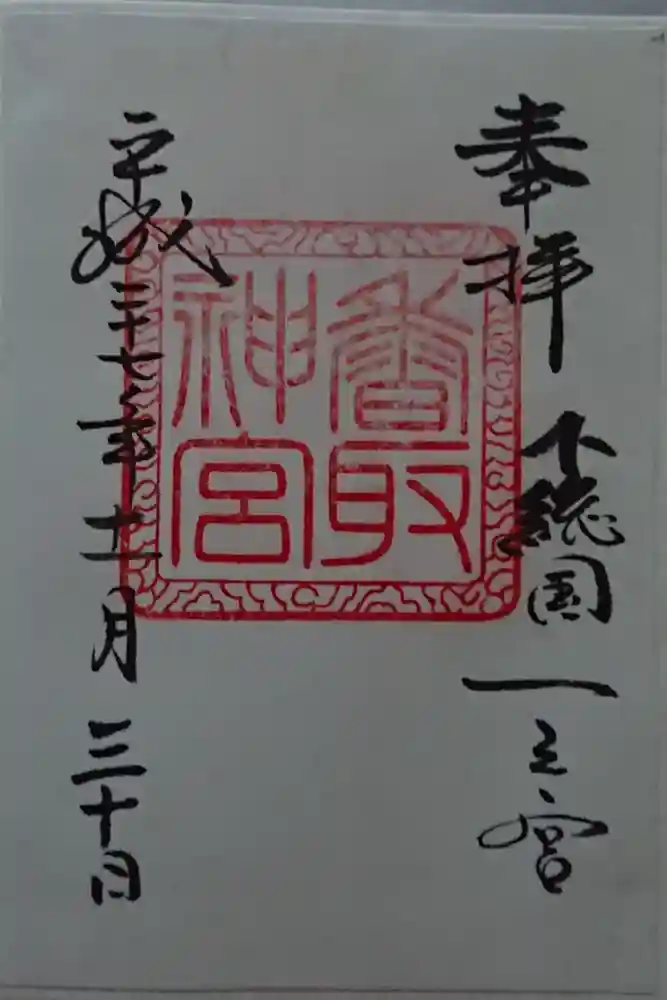 奉拝 下総国一之宮
香取
神宮
平成二十七年十一月三十日